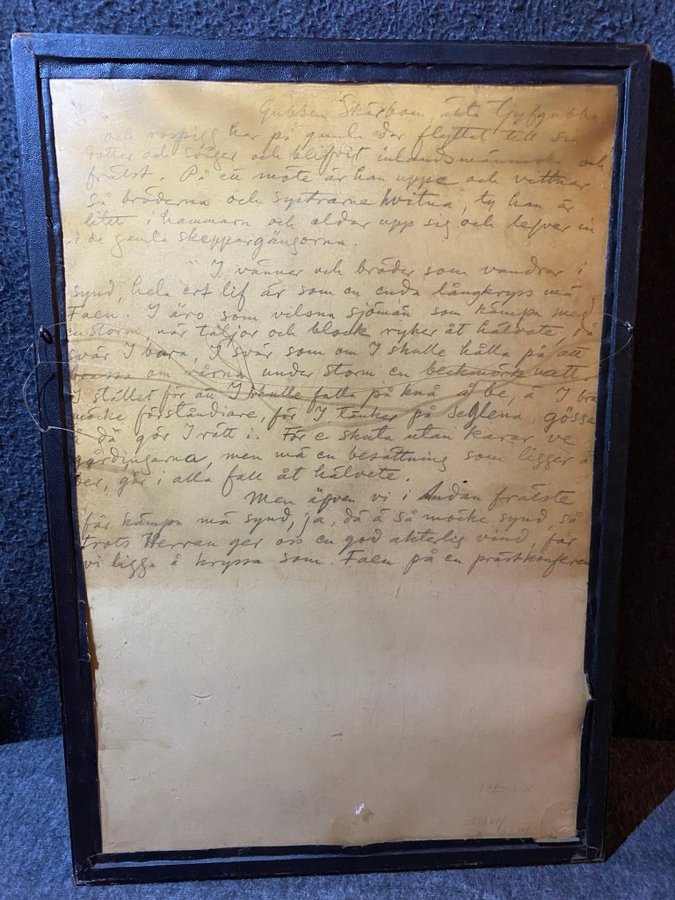 Gubben Skärbom, äkta
och rospigg har på gamla dar flyttat till sin
dotter och svåger och blifvit inlandsmänniska och
frälst. På ett möte är han uppe och vittnar
så bröderna och systrarne hvitna, ty han är
litet i hammarn och eldar upp sig och lefver in
i de gamla skeppargångorna.
"I vänner och bröder som vandrar i
synd, hela ert lif är som en enda långkryss må
Faen. I äro som vilsna sjömän som kämpa med
en storm, när taljor och block ryker åt hälvete, då
svär I bara, I svär som om I skulle hålla på att
brassa om rårna under storm en beckmörk natter
I stället för att I skulle falla på knä å be, å I bra
möcke förståndiare, för I tänker på seglena, gössa
å då gör I rätt i. För e skuta utan karar ve
gårdingarna, men må en besättning som ligger å
ber, går i alla fall åt hälvete.
Men äfven vi i Andan frälste
får kämpa må synd, ja, då ä så möcke synd, så
trots Herren ger oss en god akterlig vind, får
vi ligga å kryssa som Faen på en prästkonferen